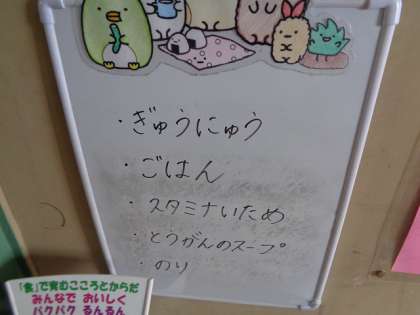 ・ぎゅうにゅう
・ごはん
・スタミナいため
・とうがんのスープ
・のり
「食」で育むこころとからだ
みんなで おいしく
パクパク るんるん